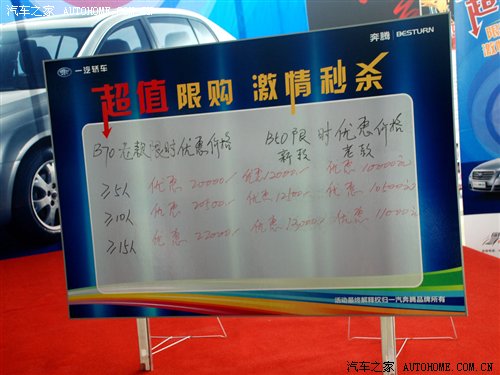 汽车之家 AUTOHOME.COM.CN
一汽轿车
奔腾 BESTURN
超值限购 激情秒杀
B70老款限时优惠价格 B50限时优惠价格
新款 老款
≥5人 优惠20000/ 优惠12000/ 优惠10000元
≥10人 优惠20500/ 优惠12500/ 优惠10500元
≥15人 优惠22000/ 优惠13000/ 优惠11000元
活动最终解释权归一汽奔腾品牌所有
汽车之家 AUTOHOME.COM.CN